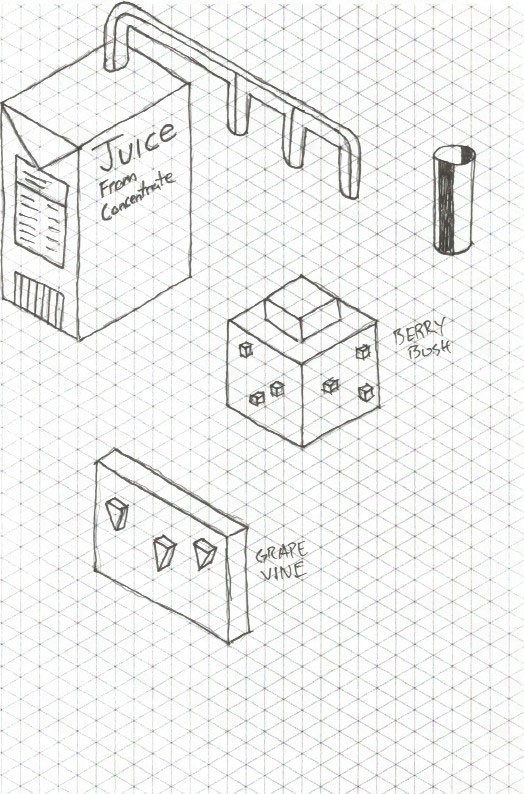 Juice
From
Concentrate
BERRY
BUSH
GRAPE
VINE